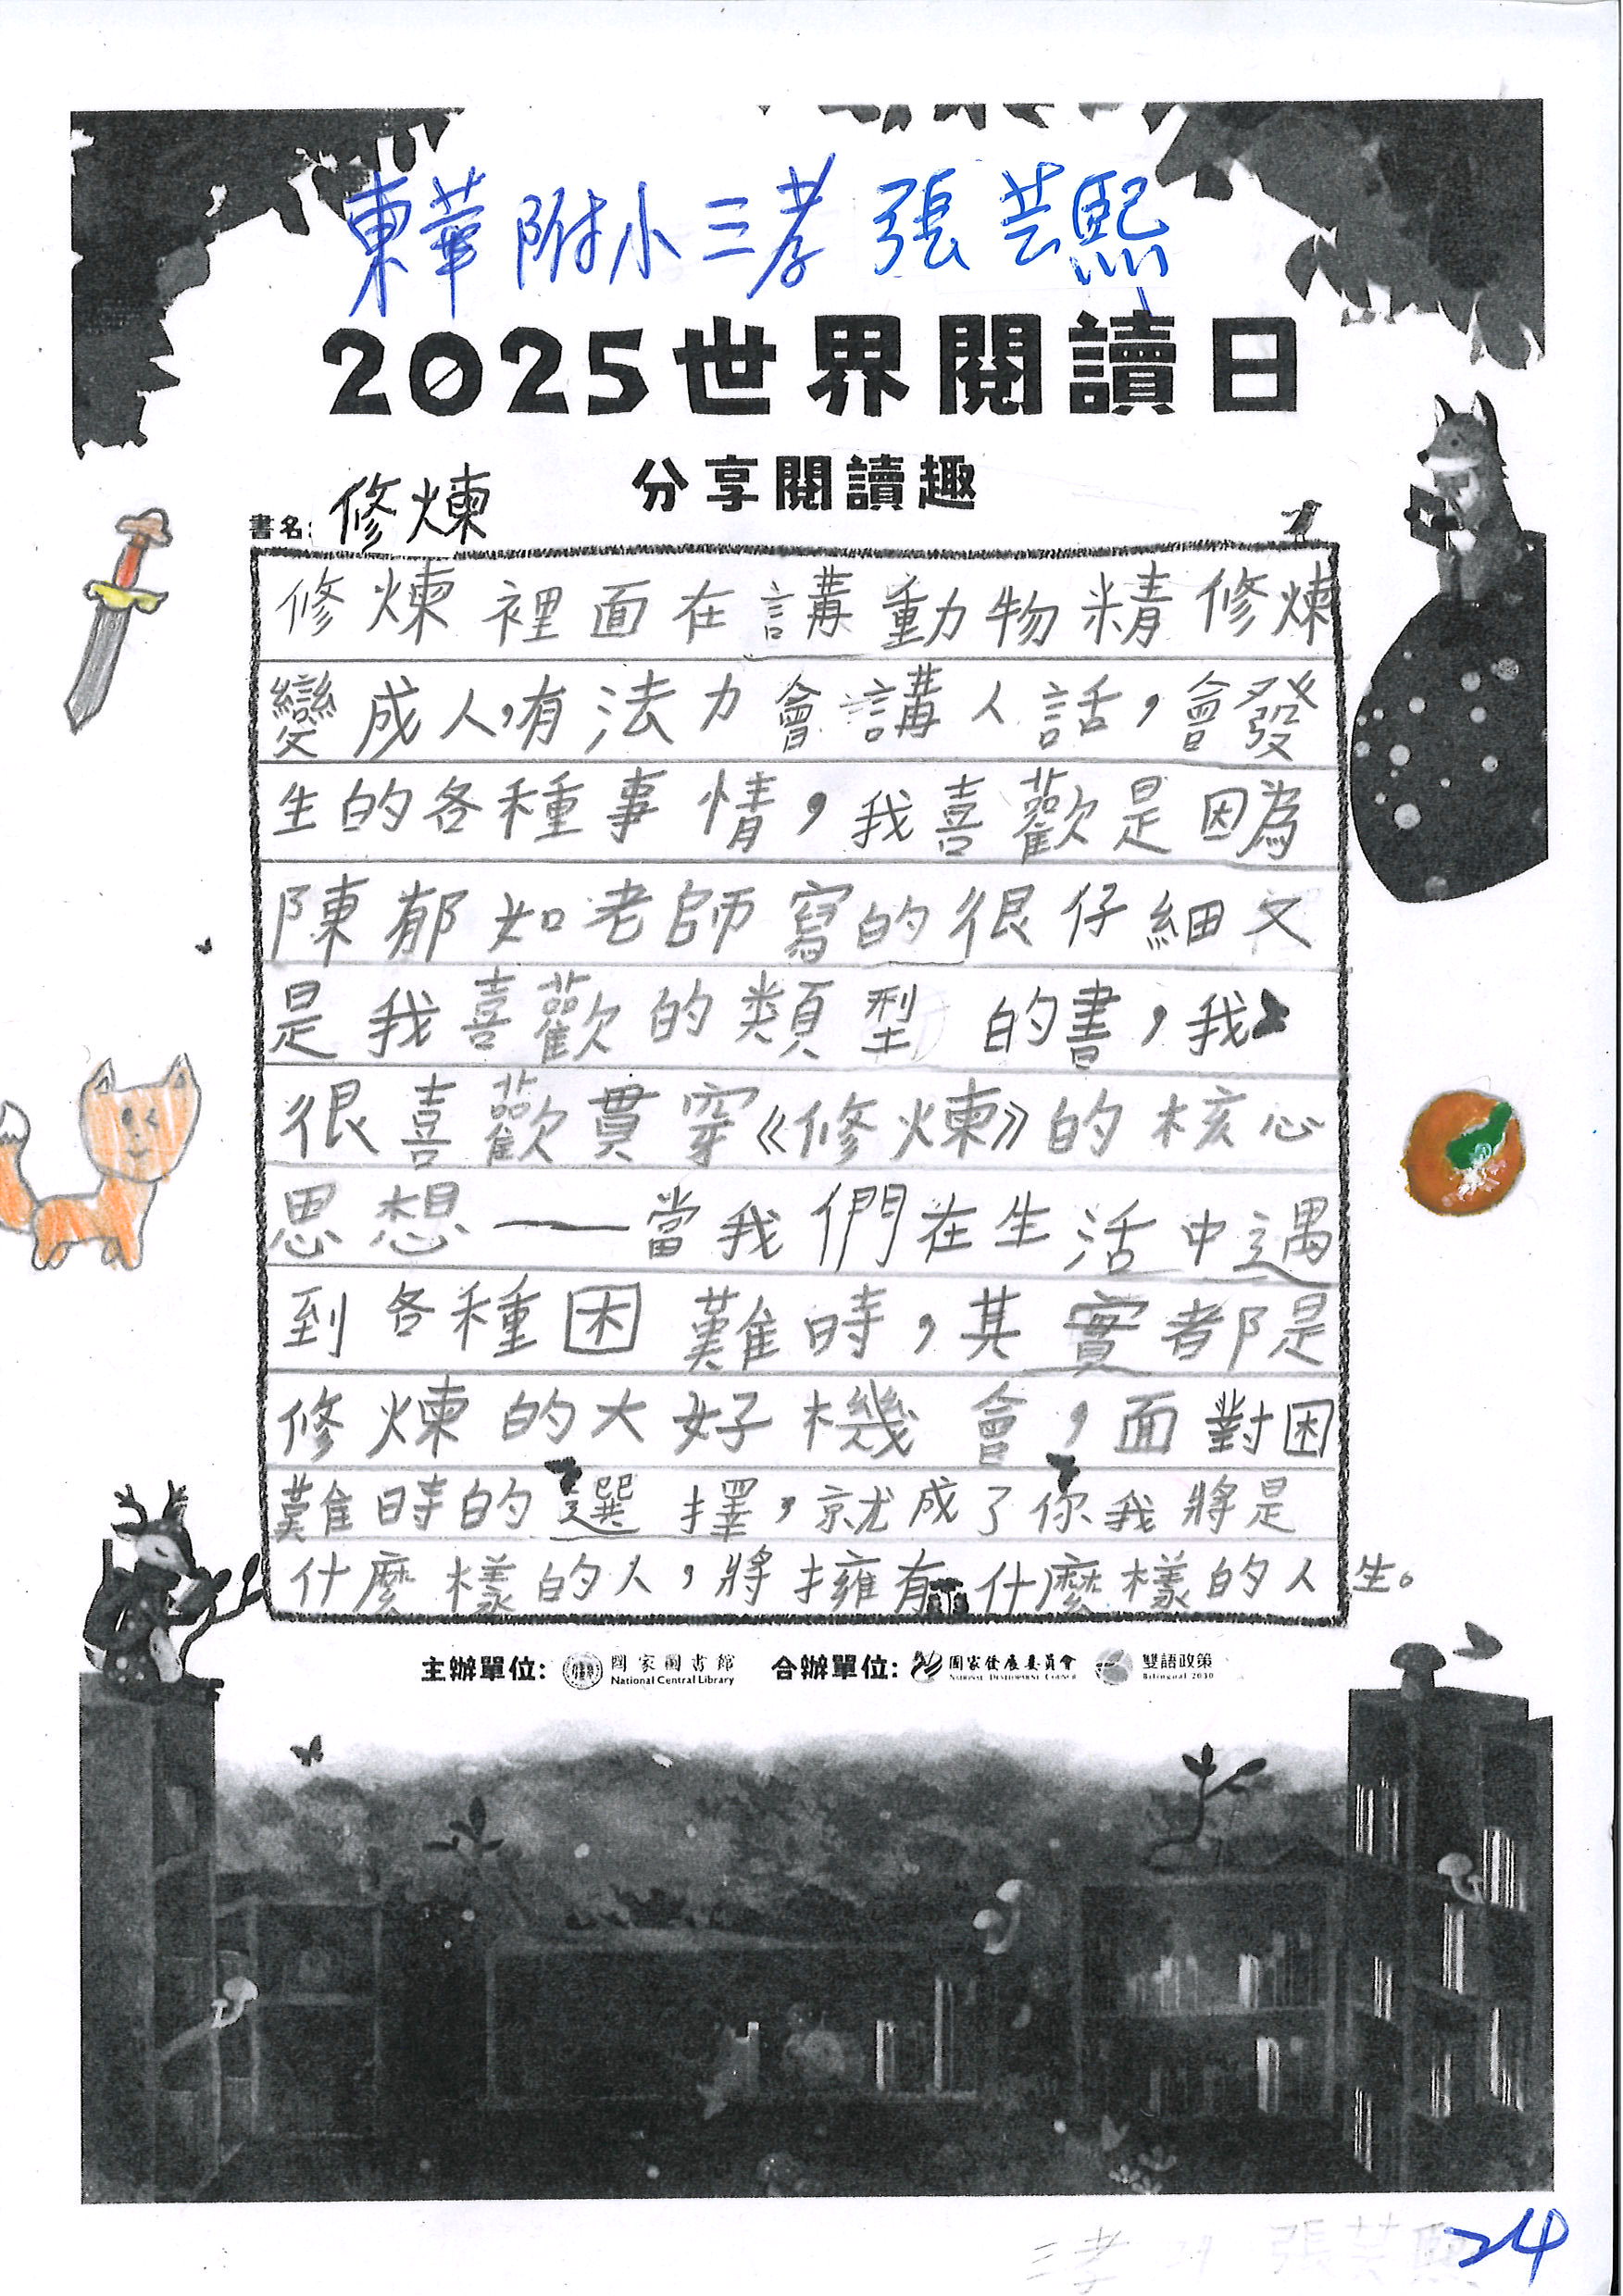 東華附小三孝 張芸熙
2025世界閱讀日
分享閱讀趣
書名: 修煉
修煉裡面在講動物精修煉
變成人,有法力會講人話，會發
生的各種事情，我喜歡是因為
陳郁如老師寫的很仔細又
是我喜歡的類型的書，我
很喜歡貫穿《修煉》的核心
思想——當我們在生活中遇
到各種困難時，其實都是
修煉的大好機會，面對困
難時的選擇，就成了你我將是
什麼樣的人，將擁有什麼樣的人生。
主辦單位: 國家圖書館 National Central Library 合辦單位: 國家發展委員會 National Development Council 雙語政策 Bilingual 2030
三孝 21 張芸熙
24